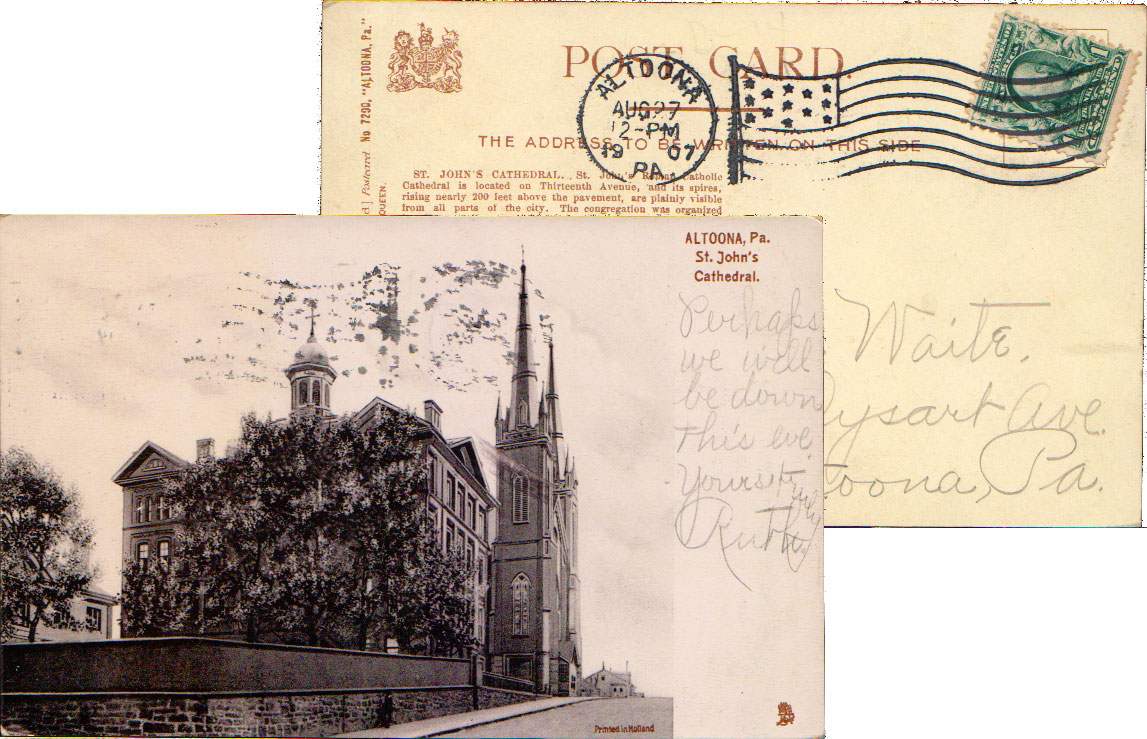 POST CARD.
ALTOONA
AUG 27
12-PM
19 07
PA
THE ADDRESS TO BE WRITTEN ON THIS SIDE
d.] Postcard No 7290, "ALTOONA, Pa."
QUEEN.
ST. JOHN'S CATHEDRAL. St. John's Roman Catholic
Cathedral is located on Thirteenth Avenue, and its spires,
rising nearly 200 feet above the pavement, are plainly visible
from all parts of the city. The congregation was organized
Waite.
Dysart Ave.
toona, Pa.
ALTOONA, Pa.
St. John's
Cathedral.
Perhaps
we will
be down
this eve.
Yours
Ruth
Printed in Holland